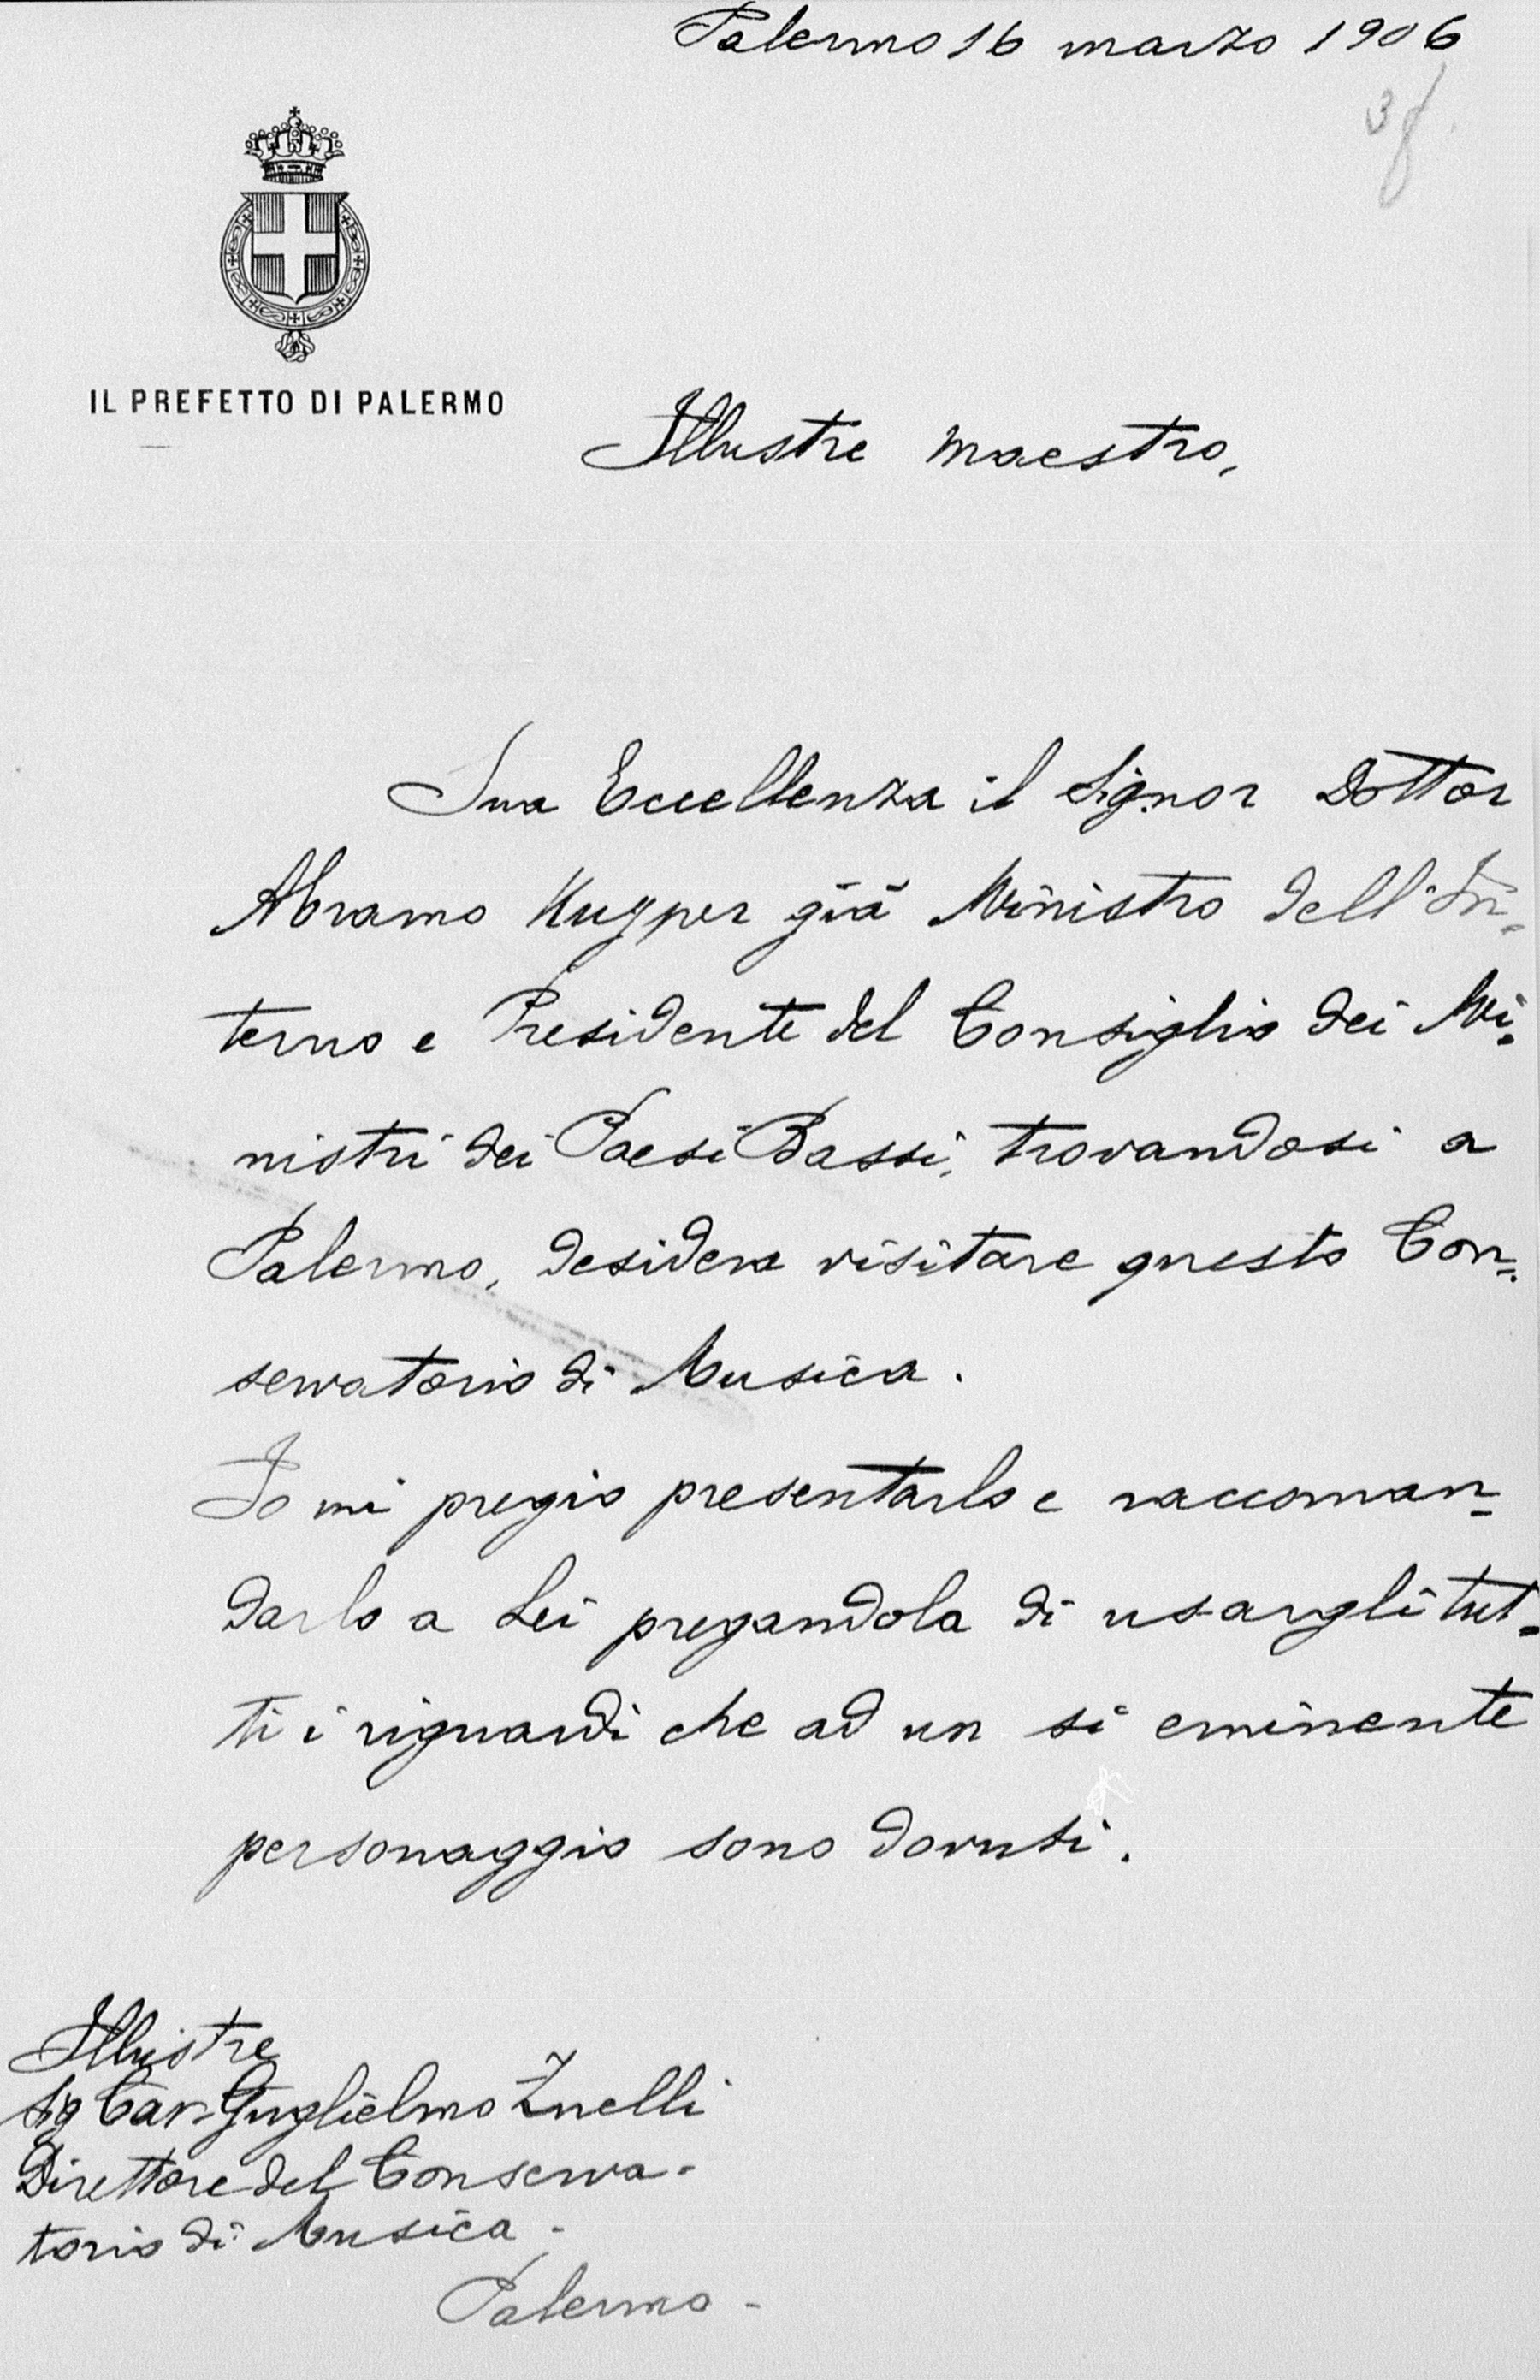 Palermo 16 marzo 1906
IL PREFETTO DI PALERMO
Illustre Maestro,
Sua Eccellenza il Signor Dottor
Abramo Kuyper già Ministro dell'In-
terno e Presidente del Consiglio dei Mi-
nistri dei Paesi Bassi, trovandosi a
Palermo, desidera visitare questo Con-
servatorio di Musica.
Io mi pregio presentarlo e raccoman-
darlo a Lei pregandola di usargli tut-
ti i riguardi che ad un sì eminente
personaggio sono dovuti.
Illustre
Sig Cav. Guglielmo Zuelli
Direttore del Conserva-
torio di Musica -
Palermo -